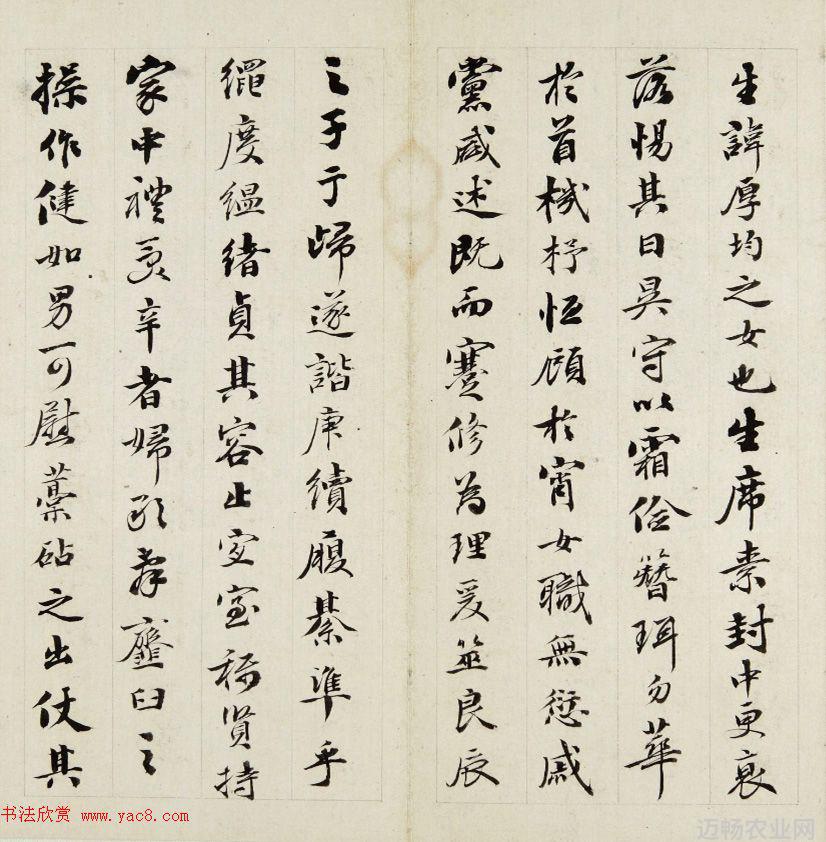 生諱厚均之女也生席素封中更衰
落惕其日昃守以霜儉簪珥勿華
於首機杼恒顧於宵女職無愆戚
黨咸述既而蹇修為理爰筮良辰
之子于歸遂諧庚續履綦準乎
繩度縕緒貞其容止宜室稱賢持
家中禮受辛者婦職弄齏臼之
操作健如男可慰藁砧之出仗其
书法欣赏 www.yac8.com
迈畅农业网